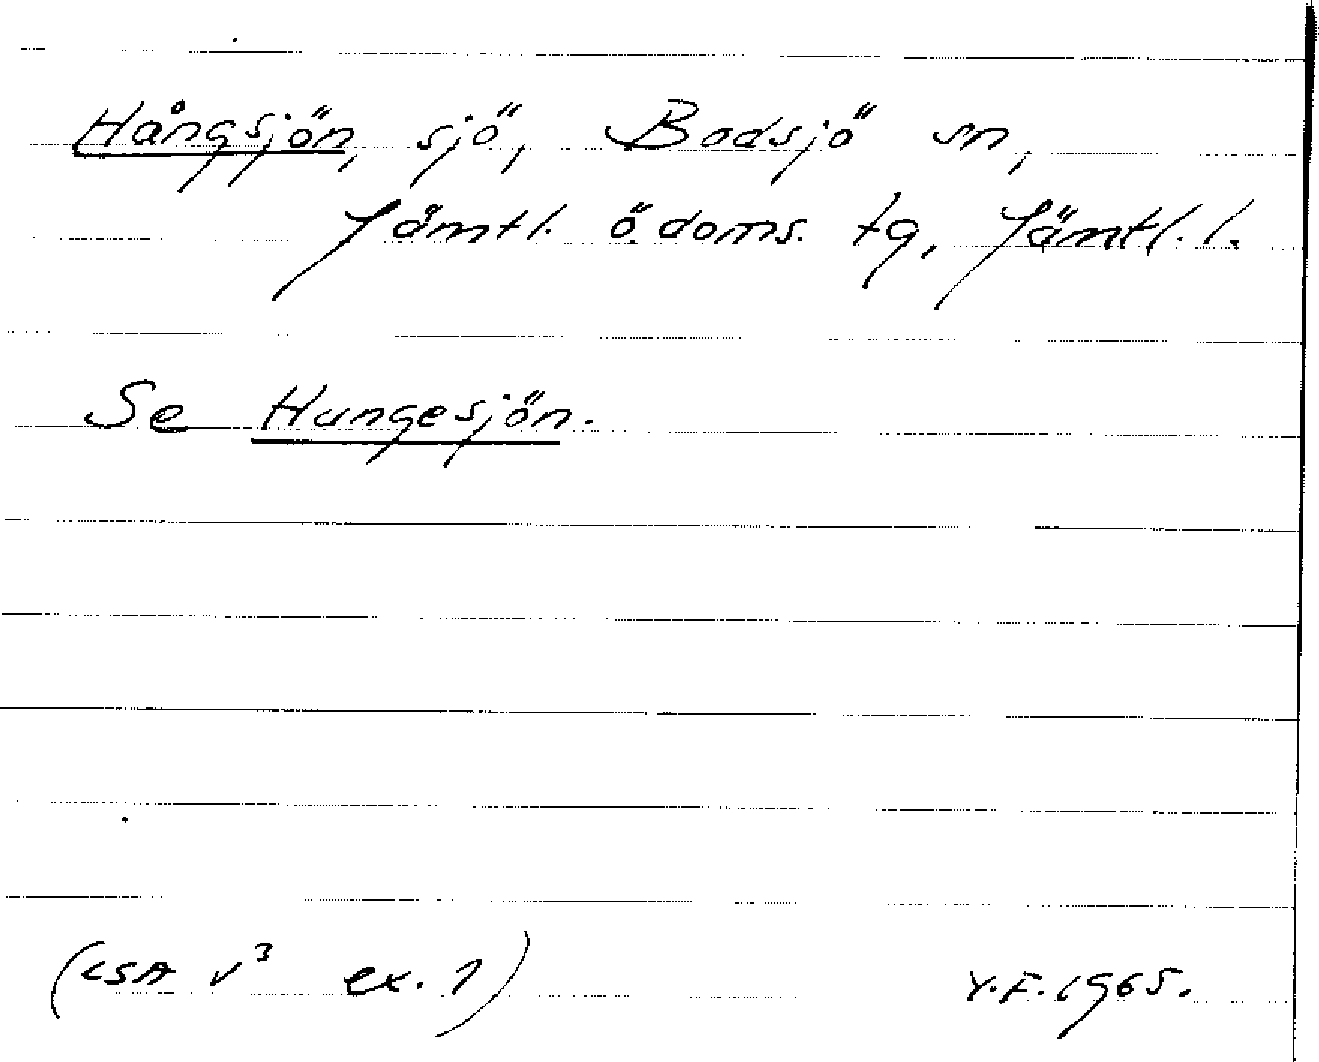 Hångsjön, sjö, Bodsjö sn,
Jämtl. ö. doms. tg, Jämtl. l.
Se Hungesjön.
(LSA V³ ex. 1) Y.F. 1965.